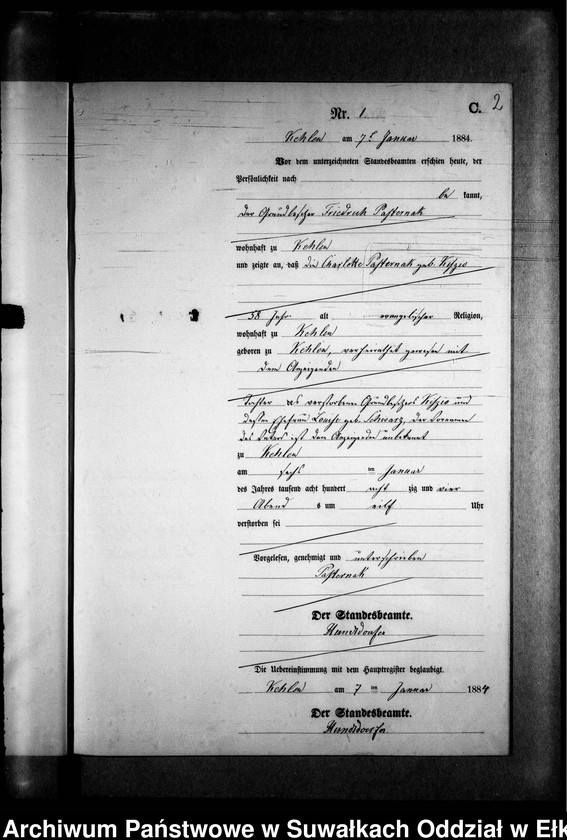 2
Nr. 1. C.
Kehlen am 7t Januar 1884.
Vor dem unterzeichneten Standesbeamten erschien heute, der
Persönlichkeit nach
be kannt,
der Grundbesitzer Friedrich Pasternak
wohnhaft zu Kehlen
und zeigte an, daß die Charlotte Pasternak geb.
58 Jahr alt evangelischer Religion,
wohnhaft zu Kehlen
geboren zu Kehlen, verheirathet gewesen mit
dem Anzeigenden
Tochter des verstorbenen Grundbesitzers und
dessen Ehefrau Louise geb. Schwarz, der Vornamen
des Vaters ist dem Anzeigenden unbekannt
zu Kehlen
am sechs ten Januar
des Jahres tausend acht hundert acht zig und vier
Abend s um eilf Uhr
verstorben sei
Vorgelesen, genehmigt und unterschrieben
Pasternak
Der Standesbeamte.
Die Uebereinstimmung mit dem Hauptregister beglaubigt.
Kehlen am 7 ten Januar 1884
Der Standesbeamte.
Archiwum Państwowe w Suwałkach Oddział w Ełk